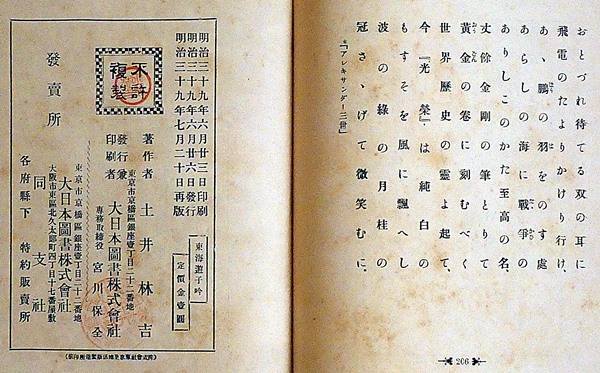 おとづれ待てる双の耳に
飛電のたよりかけり行け、
あゝ鵬の羽をのす處
あらしの海に戰爭の
ありしこのかた至高の名、
丈餘金剛の筆とりて
黃金の卷に刻むべく
世界歷史の靈よ起て、
今『光榮』は純白の
もすそを風に飄へし
波の綠の月桂の
冠さゝげて微笑むに。
*『アレキサンダー三世』
206
明治三十九年六月廿三日印刷
明治三十九年六月廿六日發行
明治三十九年七月二十日再版
東海遊子吟
定價金壹圓
不許複製
著作者 土井林吉
東京市京橋區銀座壹丁目二十二番地
發行兼印刷者 大日本圖書株式會社
專務取締役 宮川保全
發賣所
東京市京橋區銀座壹丁目二十二番地
大日本圖書株式會社
大阪市東區北久太郎町四丁目十七番屋敷
同支社
各府縣下 特約販賣所